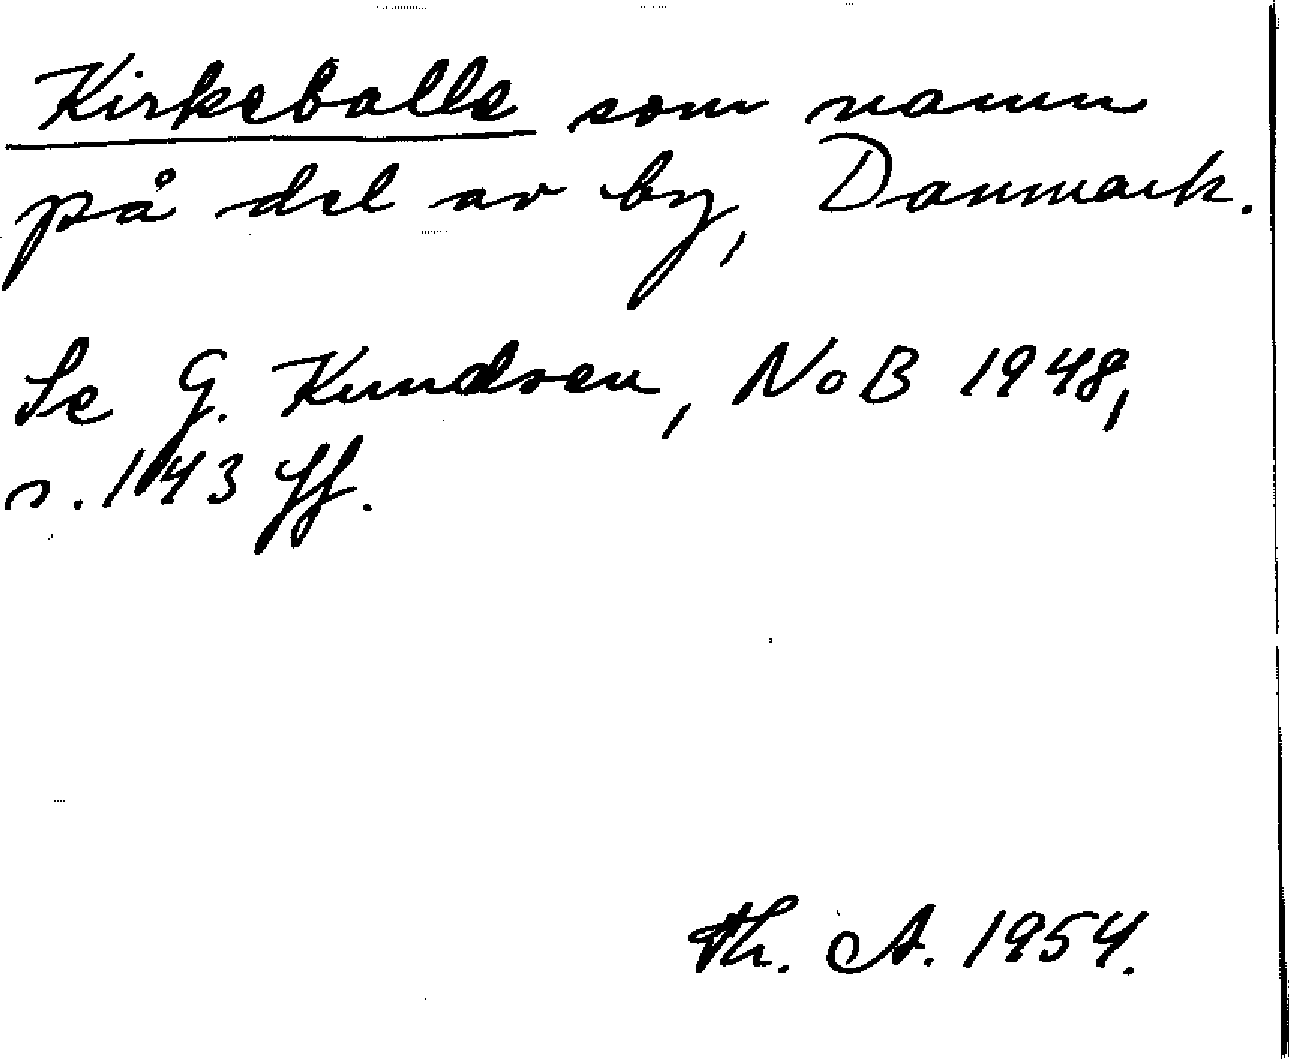 Kirkeballe som namn
på del av by, Danmark.
Se G. Knudsen, NoB 1948,
s. 143 ff.
Th. A. 1954.